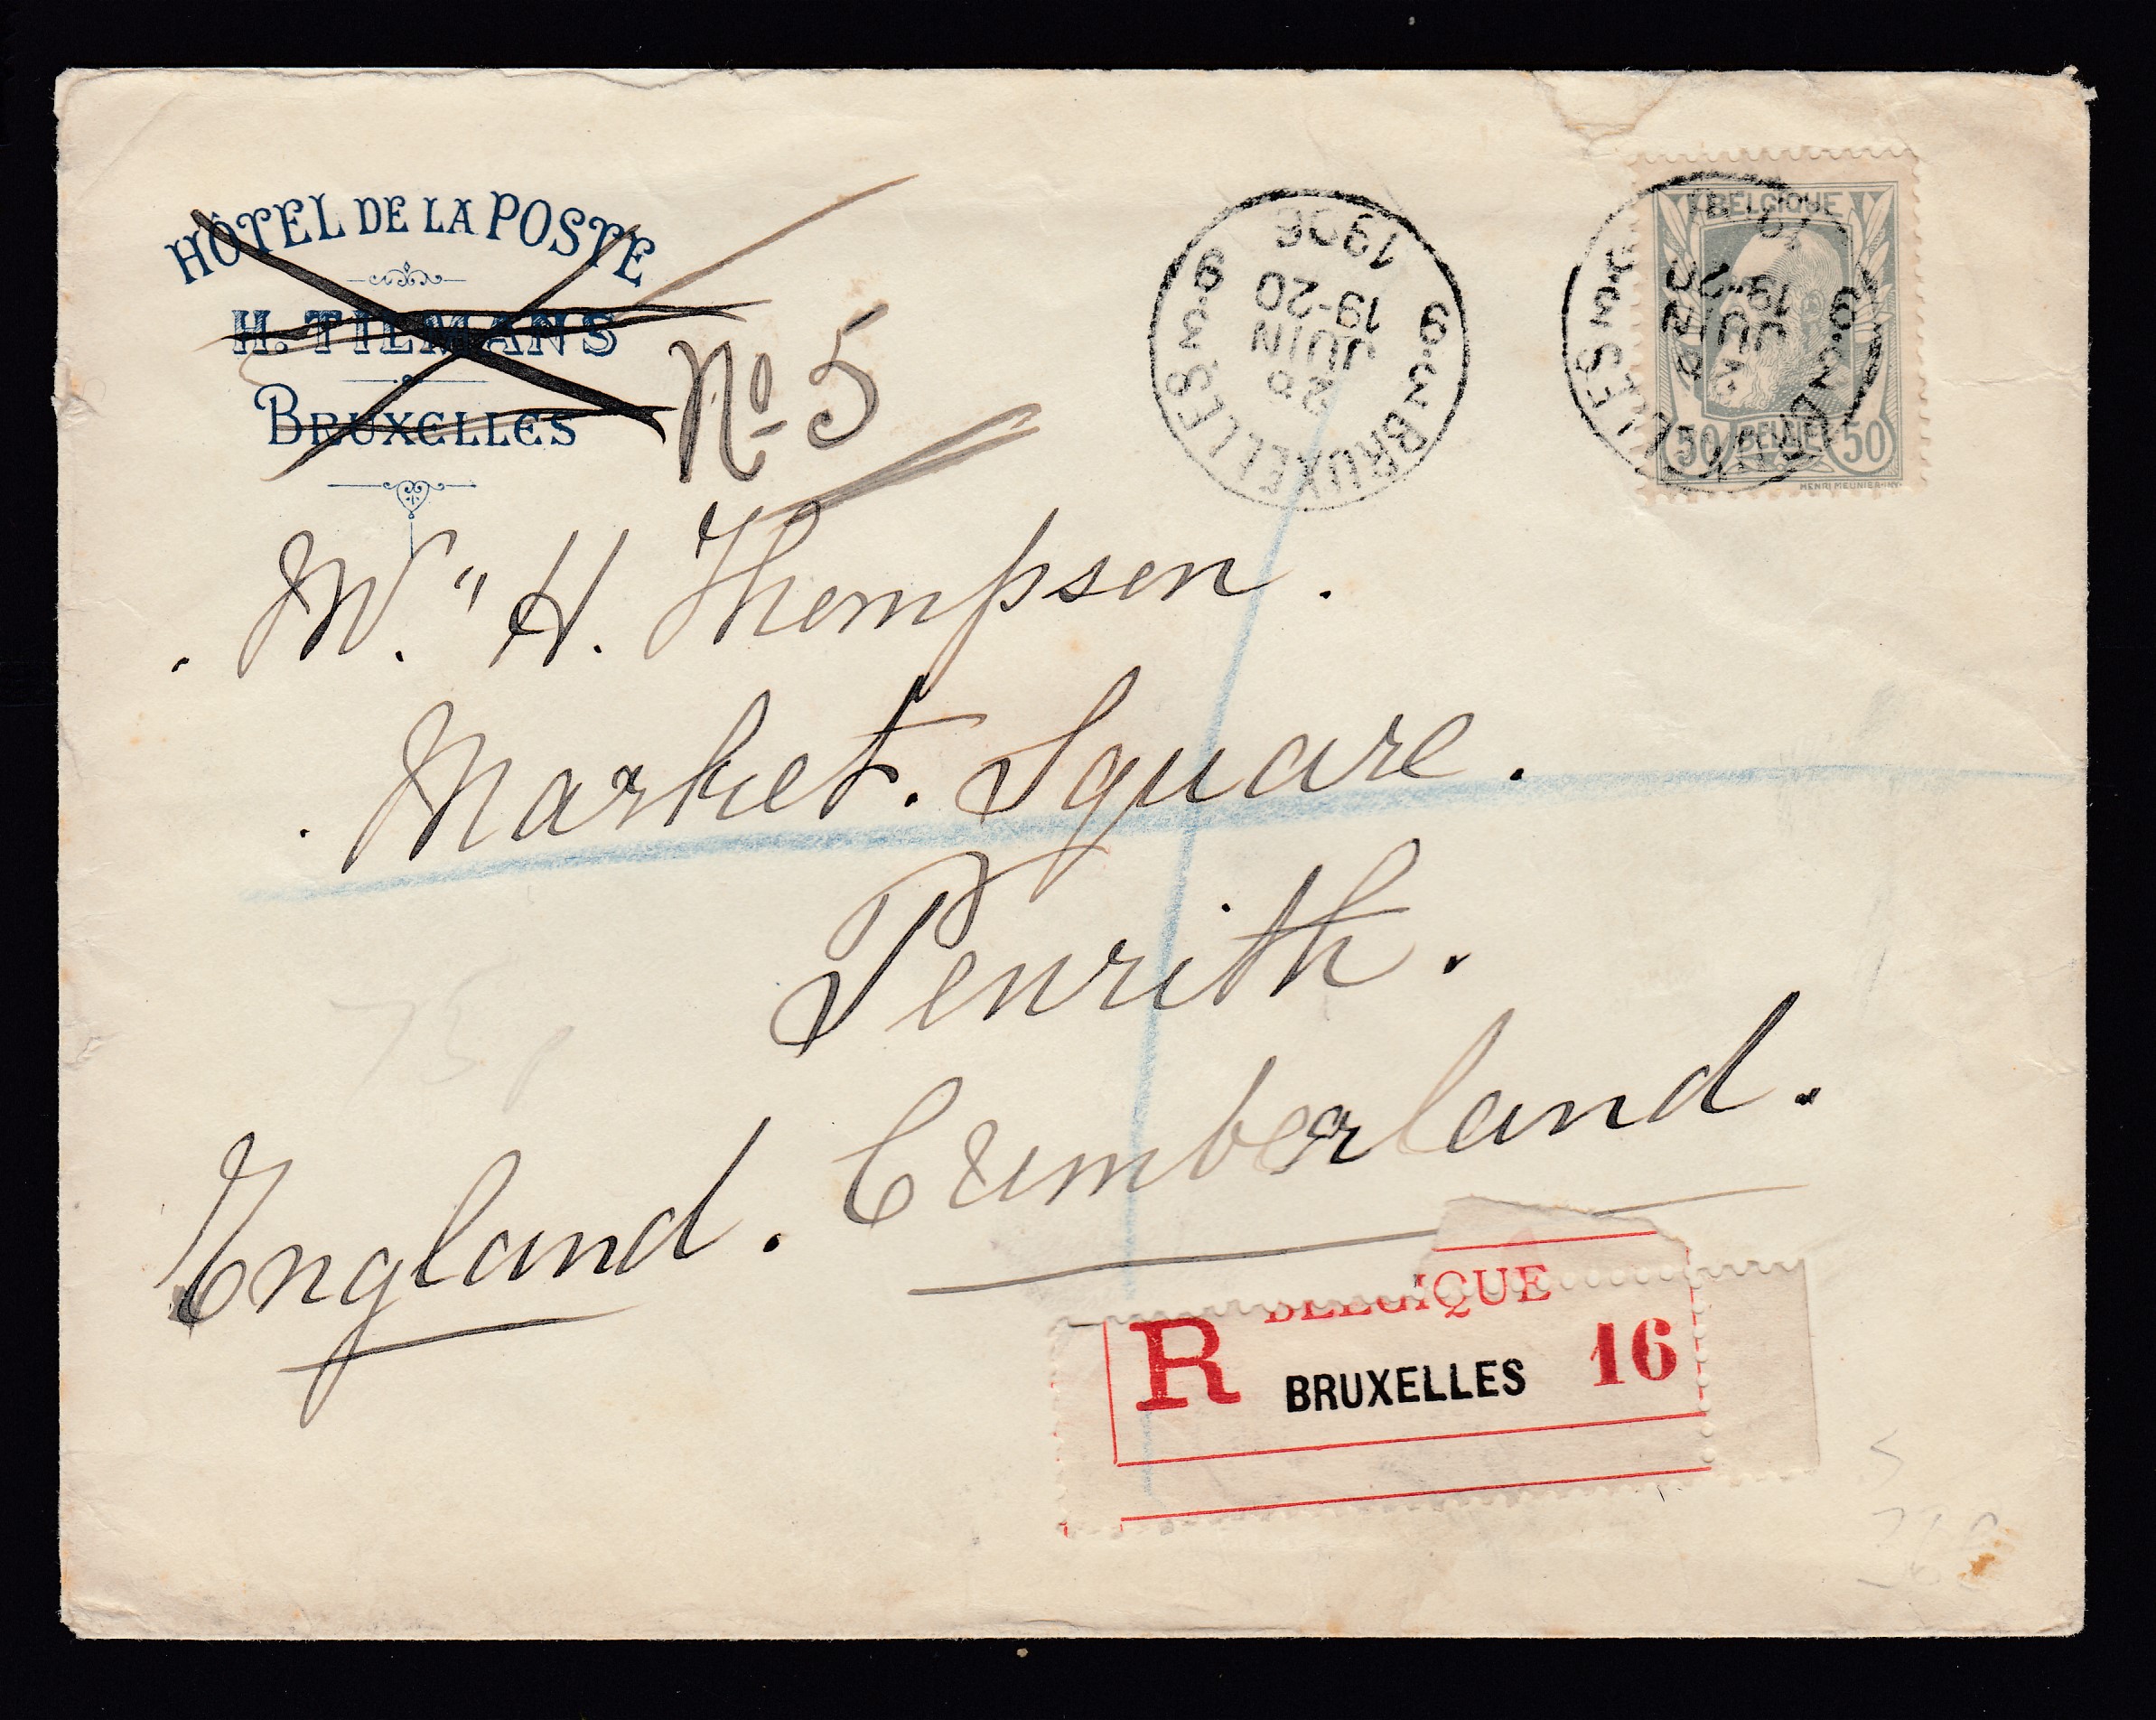 HÔTEL DE LA POSTE
H. TILMANS
BRUXELLES
No 5
1906
19-20
JUIN
BRUXELLES
BELGIQUE
19-20
JUIN
50 BELGIË 50
HENRI MEUNIER INV.
W." H. Thompson.
Market. Square.
Penrith.
England. Cumberland.
BELGIQUE
R BRUXELLES 16